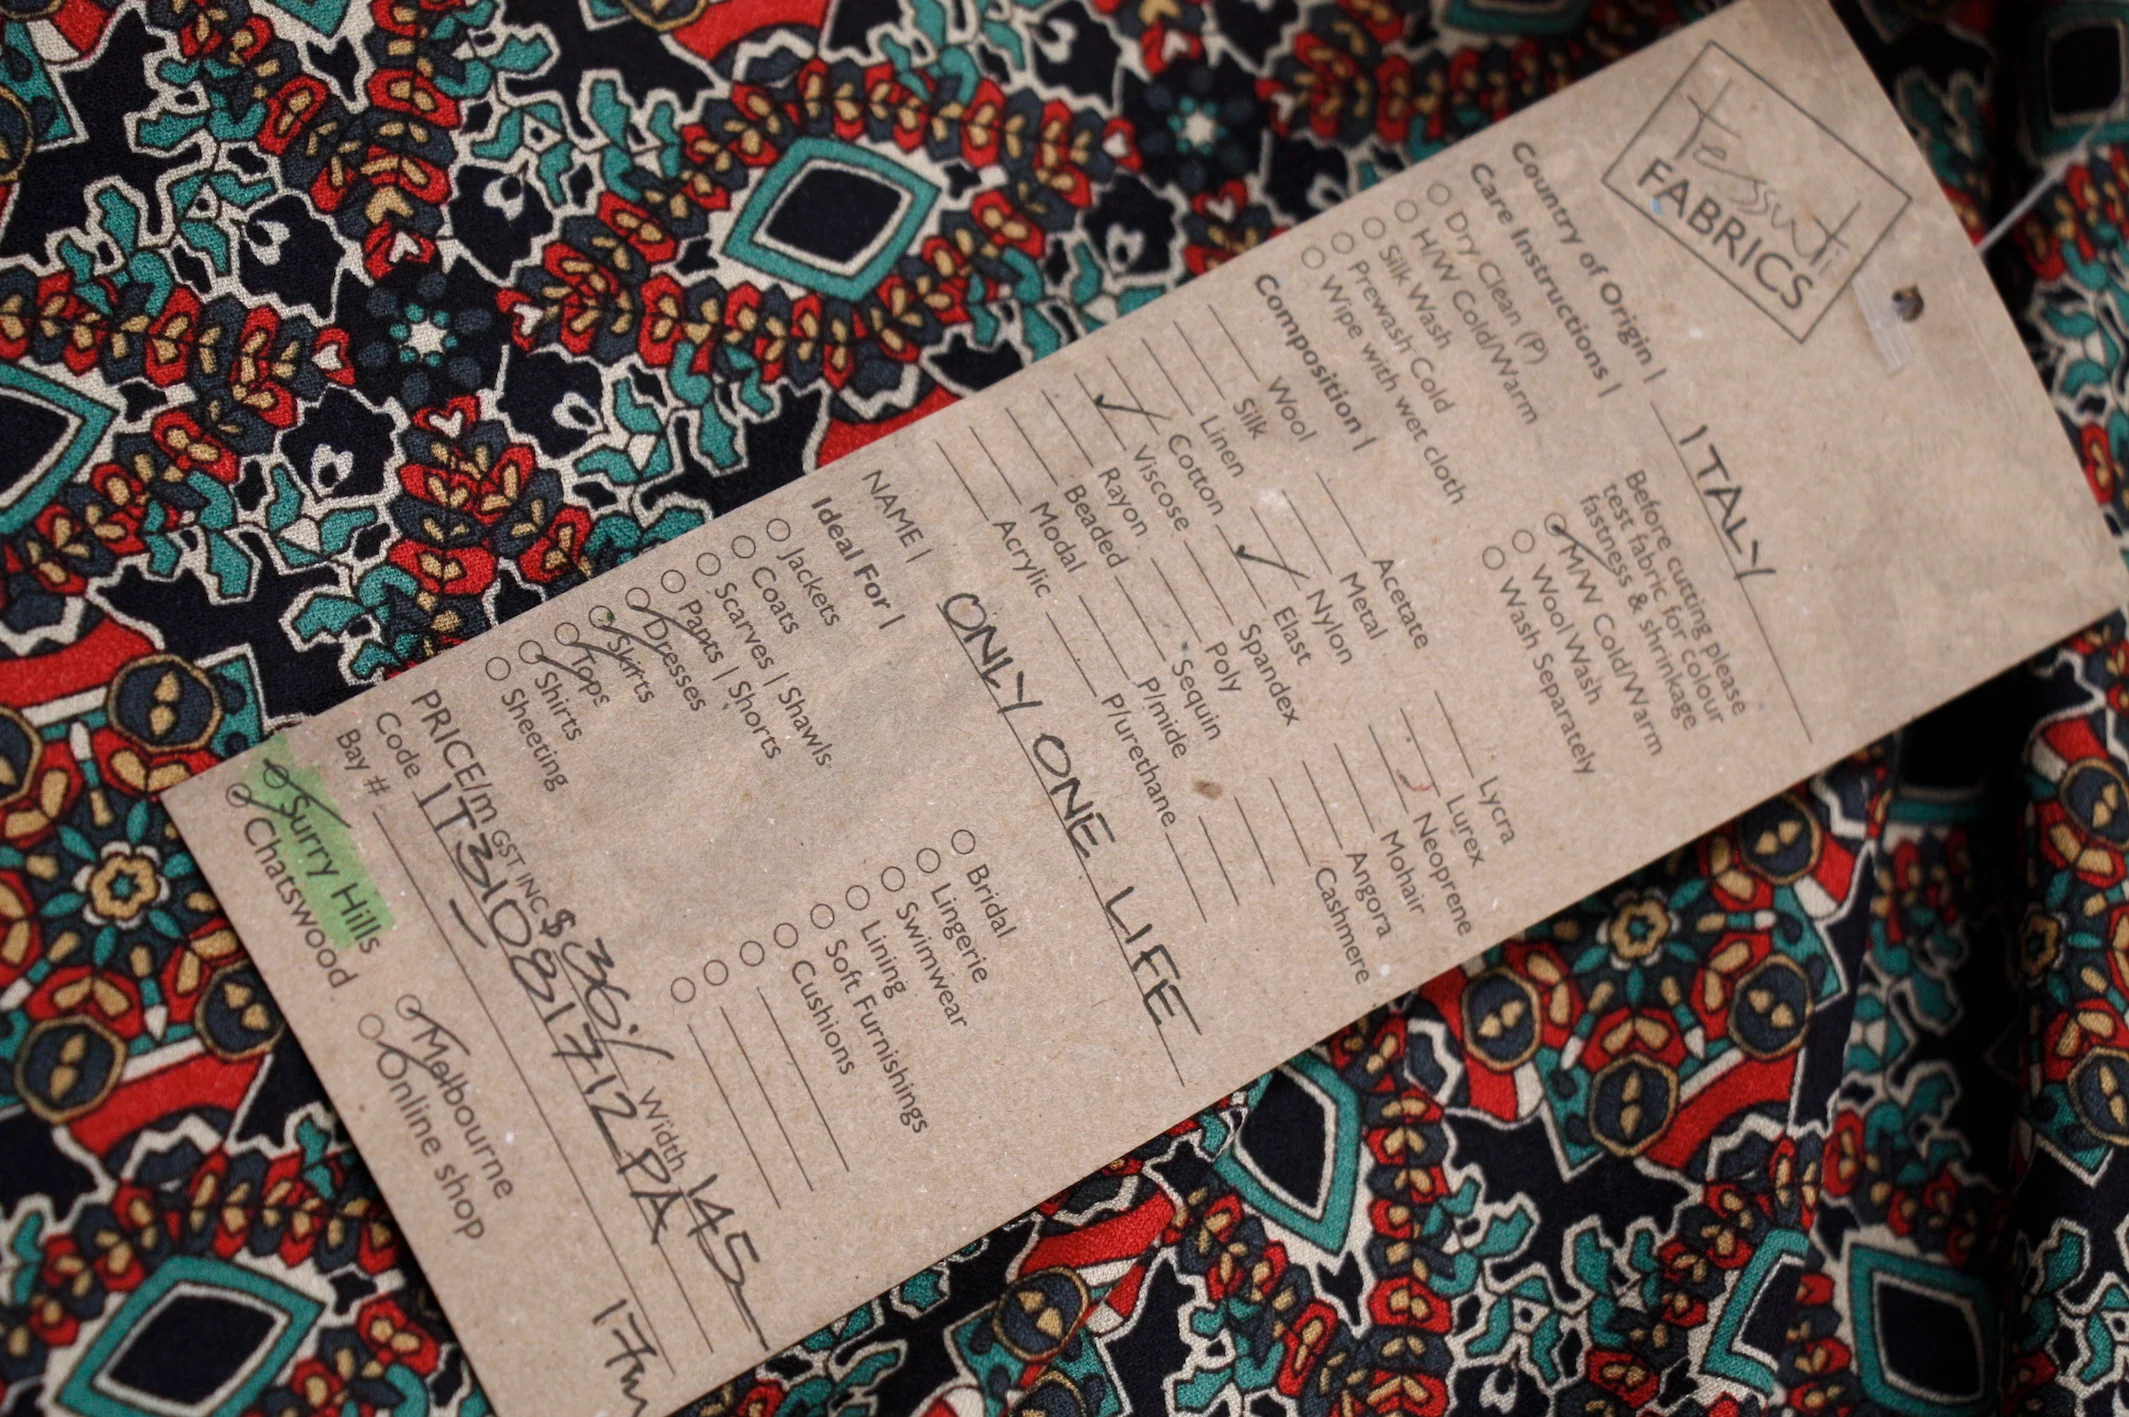 tessuti
FABRICS
Country of Origin | ITALY
Care Instructions |
Before cutting please
test fabric for colour
fastness & shrinkage
Dry Clean (P)
H/W Cold/Warm
Silk Wash
Prewash Cold
Wipe with wet cloth
M/W Cold/Warm
Wool Wash
Wash Separately
Composition |
Wool Acetate Lycra
Silk Metal Lurex
Linen Nylon Neoprene
Cotton Elast Mohair
Viscose Spandex Angora
Rayon Poly Cashmere
Beaded Sequin
Modal P/mide
Acrylic P/urethane
NAME | ONLY ONE LIFE
Ideal For |
Jackets
Coats
Scarves | Shawls
Pants | Shorts
Dresses
Skirts
Tops
Shirts
Sheeting
Bridal
Lingerie
Swimwear
Lining
Soft Furnishings
Cushions
PRICE/m GST INC $ 36 Width 145
Code 1T31081712PA
Bay # — 17m
Surry Hills Melbourne
Chatswood Online shop